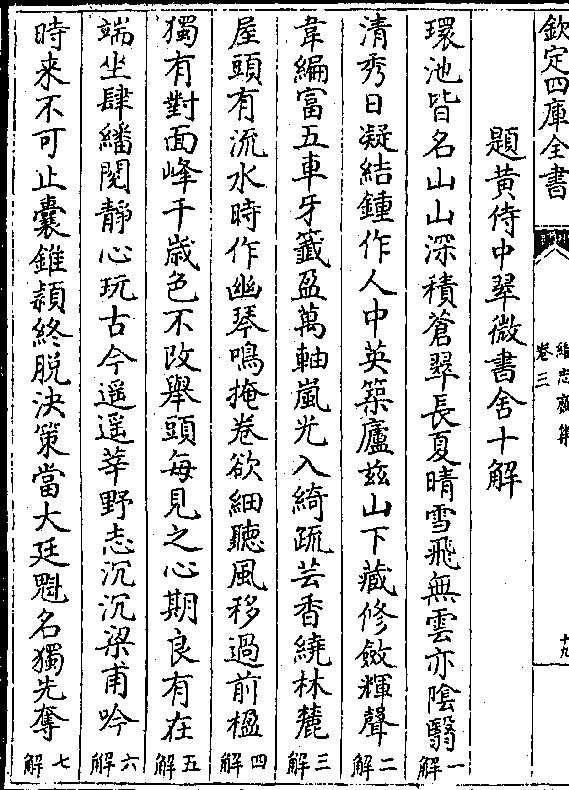 欽定四庫全書
繼志齋集
卷三
十九
題黄侍中翠微書舍十解
環池皆名山山深積蒼翠長夏晴雪飛無雲亦陰翳一解
清秀日凝結鍾作人中英築廬兹山下藏修斂輝聲二解
韋編富五車牙籤盈萬軸嵐光入綺疏芸香繞林麓三解
屋頭有流水時作幽琴鳴掩卷欲細聽風移過前楹四解
獨有對面峰千歳色不改舉頭每見之心期良有在五解
端坐肆繙閱靜心玩古今遥遥莘野志沉沉梁甫吟六解
時来不可止囊錐潁終脱決策當大廷魁名獨先奪七解